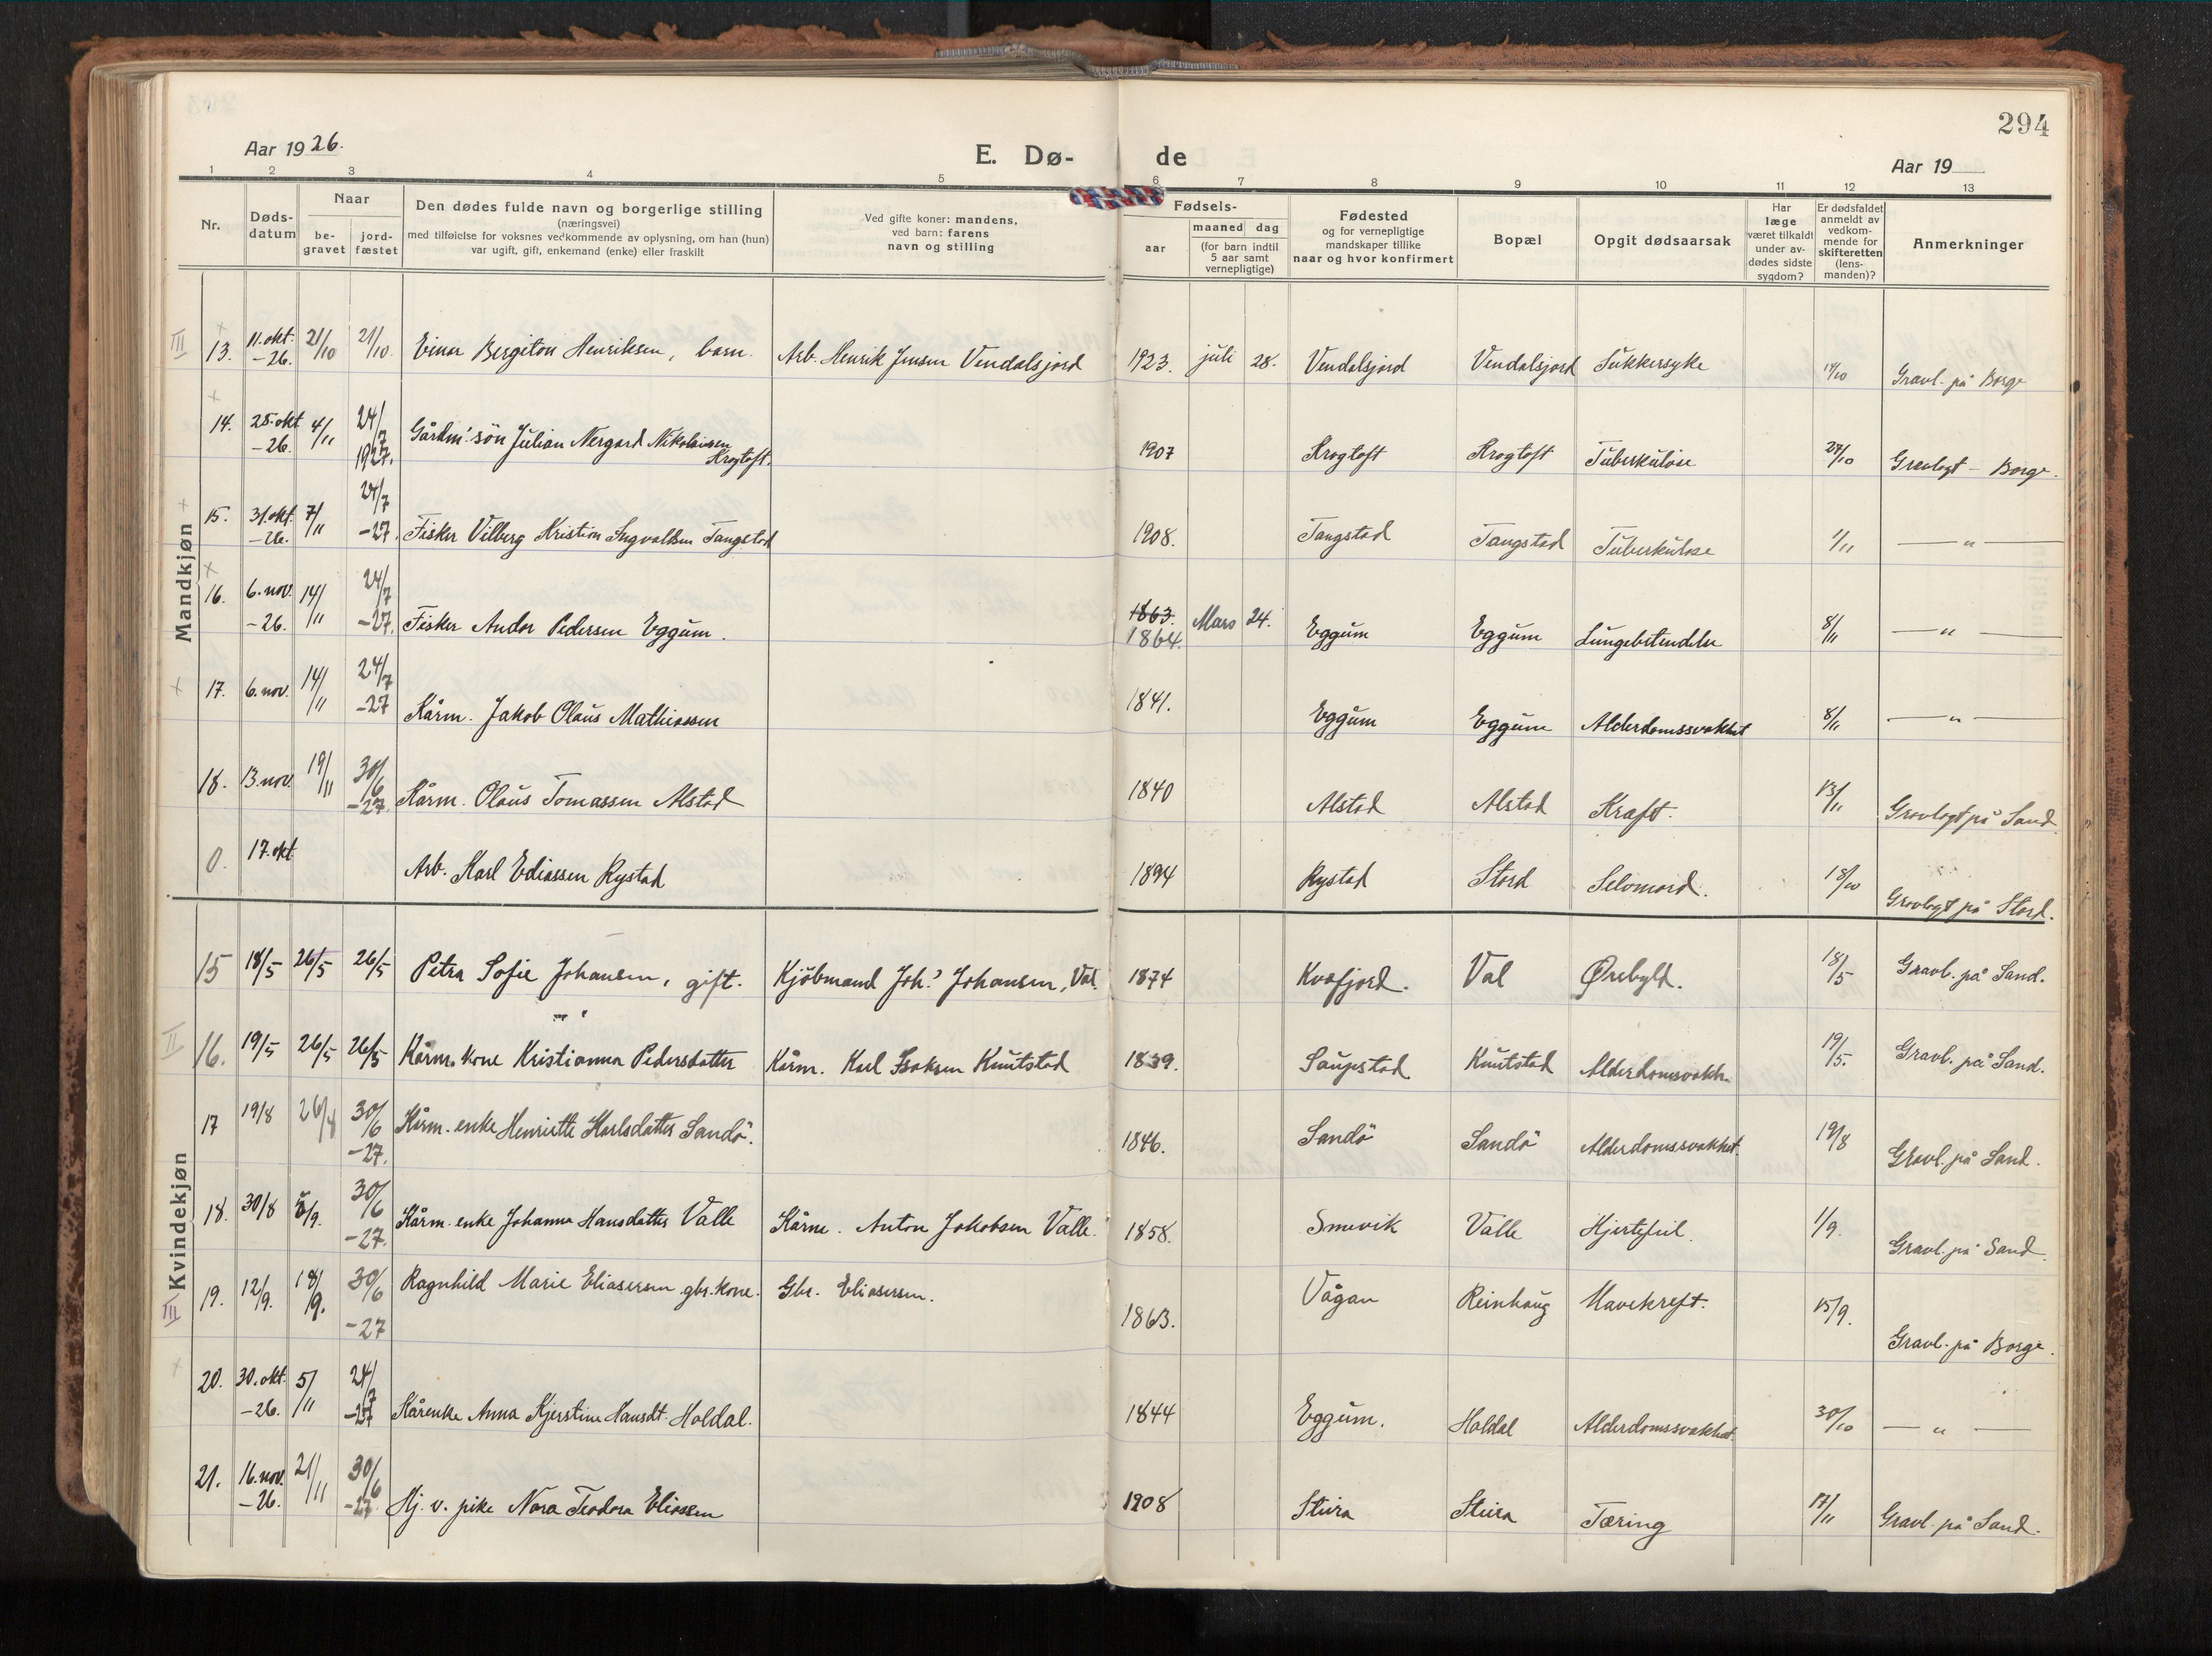 294
Aar 1926.
E. Dø- de
Aar 19
1 2 3 4 5 6 7 8 9 10 11 12 13
Nr.
Døds-
datum
Naar
be-
gravet
jord-
fæstet
Den dødes fulde navn og borgerlige stilling
(næringsvei)
med tilføielse for voksnes vedkommende av oplysning, om han (hun)
var ugift, gift, enkemand (enke) eller fraskilt
Ved gifte koner: mandens,
ved barn: farens
navn og stilling
Fødsels-
aar
maaned dag
(for barn indtil
5 aar samt
vernepligtige)
Fødested
og for vernepligtige
mandskaper tillike
naar og hvor konfirmert
Bopæl
Opgit dødsaarsak
Har
læge
været tilkaldt
under av-
dødes sidste
sygdom?
Er dødsfaldet
anmeldt av
vedkom-
mende for
skifteretten
(lens-
manden)?
Anmerkninger
Mandkjøn
III 13. 11. okt. -26. 21/10 21/10. Einar Bergiton Henriksen, barn. Arb. Henrik Jensen Vendalsjord 1923. juli 28. Vendalsjord Vendalsjord Sukkersyke 14/10 Gravl. på Borge
14. 25. okt -26. 4/11 24/7 1927. Gårdm. søn Julian Nergard Nikolaisen
Krogtoft. 1907 Krogtoft Krogtoft Tuberkulose 27/10 Gravlagt - Borge.
15. 31. okt. -26. 7/11 24/7 -27. Fisker Vilberg Kristian Ingvaldsen Tangstad 1908. Tangstad Tangstad Tuberkulose 1/11 — " —
16. 6. nov. -26. 14/11 24/7 -27. Fisker Andor Pedersen Eggum. 1863. 1864. Mars 24. Eggum Eggum Lungebetendelse 8/11 — " —
17. 6. nov. 14/11 24/7 -27 Kårm. Jakob Olaus Mathiassen 1841. Eggum Eggum Alderdomssvakhet 8/11 — " —
18. 13. nov. 19/11 30/6 -27. Kårm. Olaus Tomassen Alstad 1840 Alstad Alstad Kræft. 13/11 Gravlagt på Sand
0. 17. okt Arb. Karl Ediassen Rystad 1894 Rystad Stord Selvmord. 18/10 Gravlagt på Stord.
Kvindekjøn
15 18/5 26/5 26/5 Petra Sofie Johansen, gift. Kjöbmand Joh.s Johansen, Val. 1874 Kvæfjord. Val Ørebyld. 18/5 Gravl. på Sand.
II 16. 19/5 26/5 26/5 Kårm. kone Kristianna Pedersdatter Kårm. Karl Isaksen Knutstad 1839. Saupstad Knutstad Alderdomsvakh. 19/5. Gravl. på Sand.
17 19/8 26/8 30/6 -27. Kårm. enke Henriette Karlsdatter Sandö. 1846. Sandö Sandö Alderdomssvakhet. 19/8 Gravl. på Sand.
18. 30/8 5/9. 30/6 -27. Kårm. enke Johanna Hansdatter Valle Kårm. Anton Jakobsen Valle. 1858. Smevik Valle Hjertefeil. 1/9. Gravl. på Sand
III 19. 12/9. 18/9. 30/6 -27 Ragnhild Marie Eliasersen gbr. kone. Gbr. Eliasersen. 1863. Vågan Reinhaug Mavekreft. 15/9. Gravl. på Borge.
20. 30. okt. -26. 5/11 24/7 -27 Kårenke Anna Kjerstine Hansdt. Holdal. 1844 Eggum. Holdal Alderdomssvakhet. 30/10 — " —
21. 16. nov. -26. 21/11 30/6 -27. Hj. v. pike Nora Teodora Eliassen 1908 Stura Stura Tæring 17/11 Gravl. på Sand.